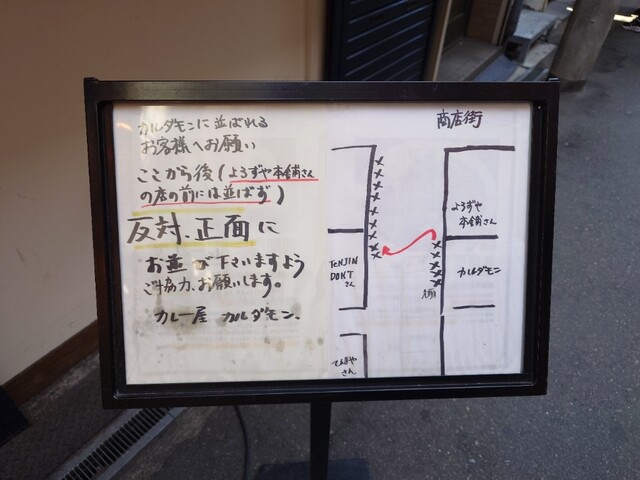 カルダモンに並ばれる
お客様へお願い
ここから後(よろずや本舗さん
の店の前には並ばず)
反対、正面に
お並び下さいますよう
ご協力、お願いします。
カレー屋 カルダモン、
商店街
よろずや
本舗さん
TENJIN
DONT
さん
カルダモン
てんまや
さん